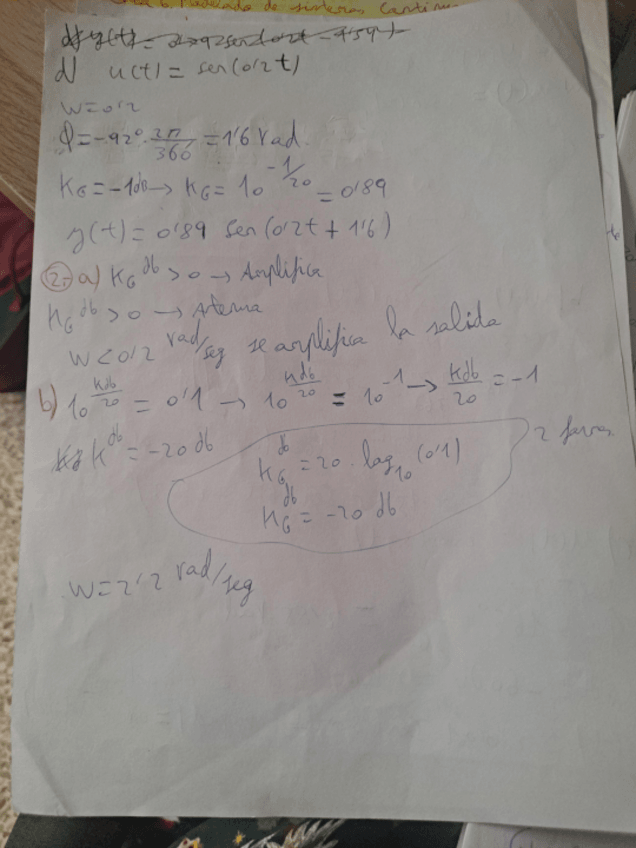 6 Modelado de sistemas Continu
d) u(t) = sen(0'2t)
w=0'2
φ=-92º · 2π/360 = 1'6 rad.
KG=-1db → KG= 10^(-1/20) = 0'89
y(t) = 0'89 sen(0'2t + 1'6)
2.- a) KG^db > 0 → Amplifica
KG^db > 0 → Atenua
w < 0'2 rad/seg se amplifica la salida
b) 10^(Kdb/20) = 0'1 → 10^(Kdb/20) = 10^-1 → Kdb/20 = -1
K^db = -20 db
KG^db = 20 · log10 (0'1)
2 formas
KG^db = -20 db
w=2'2 rad/seg